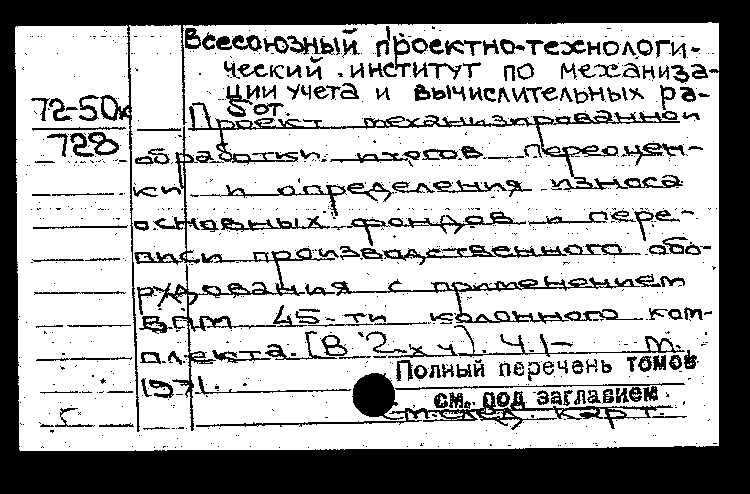 Всесоюзный проектно-технологи-
ческий институт по механиза-
ции учета и вычислительных ра-
бот.
72-50к
728
Проект механизированной
обработки итогов переоцен-
ки и определения износа
основных фондов и пере-
писи производственного обо-
рудования с применением
ВПМ 45-ти колонного ком-
плекта. [В 2-х ч]. Ч.1- М.
1971.
Полный перечень томов
см. под заглавием
см.след. карт.